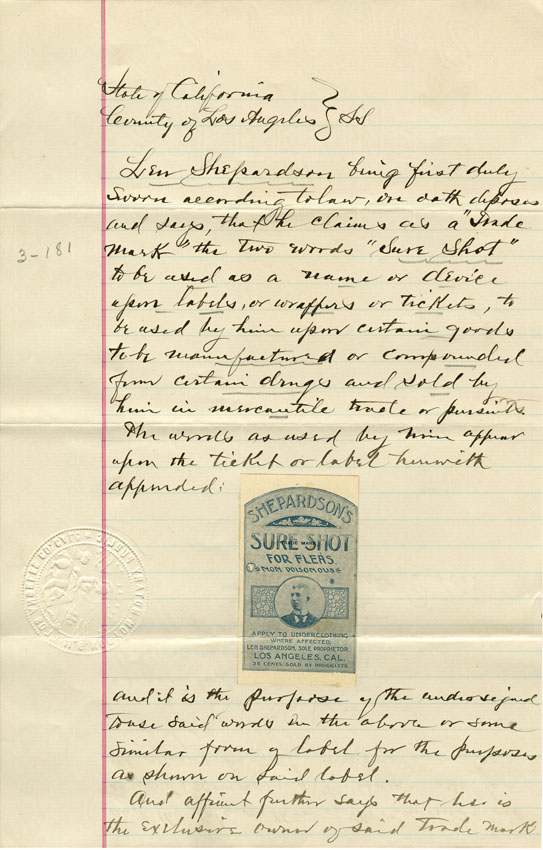 State of California
County of Los Angeles } SS
Len Shepardson being first duly
Sworn according to law, on oath deposes
and says, that he claims as a "Trade
Mark" the two words "Sure Shot"
3-181
to be used as a name or device
upon labels, or wrappers or tickets, to
be used by him upon certain goods
to be manufactured or compounded
from certain druges and sold by
him in mercantile trade or pursuits.
The words as used by him appear
upon the ticket or label herewith
appended:
SHEPARDSON'S
SURE SHOT
TRADE MARK
FOR FLEAS.
NON POISONOUS
APPLY TO UNDERCLOTHING
WHERE AFFECTED.
LEN SHEPARDSON, SOLE PROPRIETOR
LOS ANGELES, CAL.
25 CENTS SOLD BY DRUGGISTS
and it is the purpose of the undersigned
to use said words in the above or some
similar form of label for the purposes
as shown on said label.
And affiant further says that he is
the exclusive owner of said trade mark